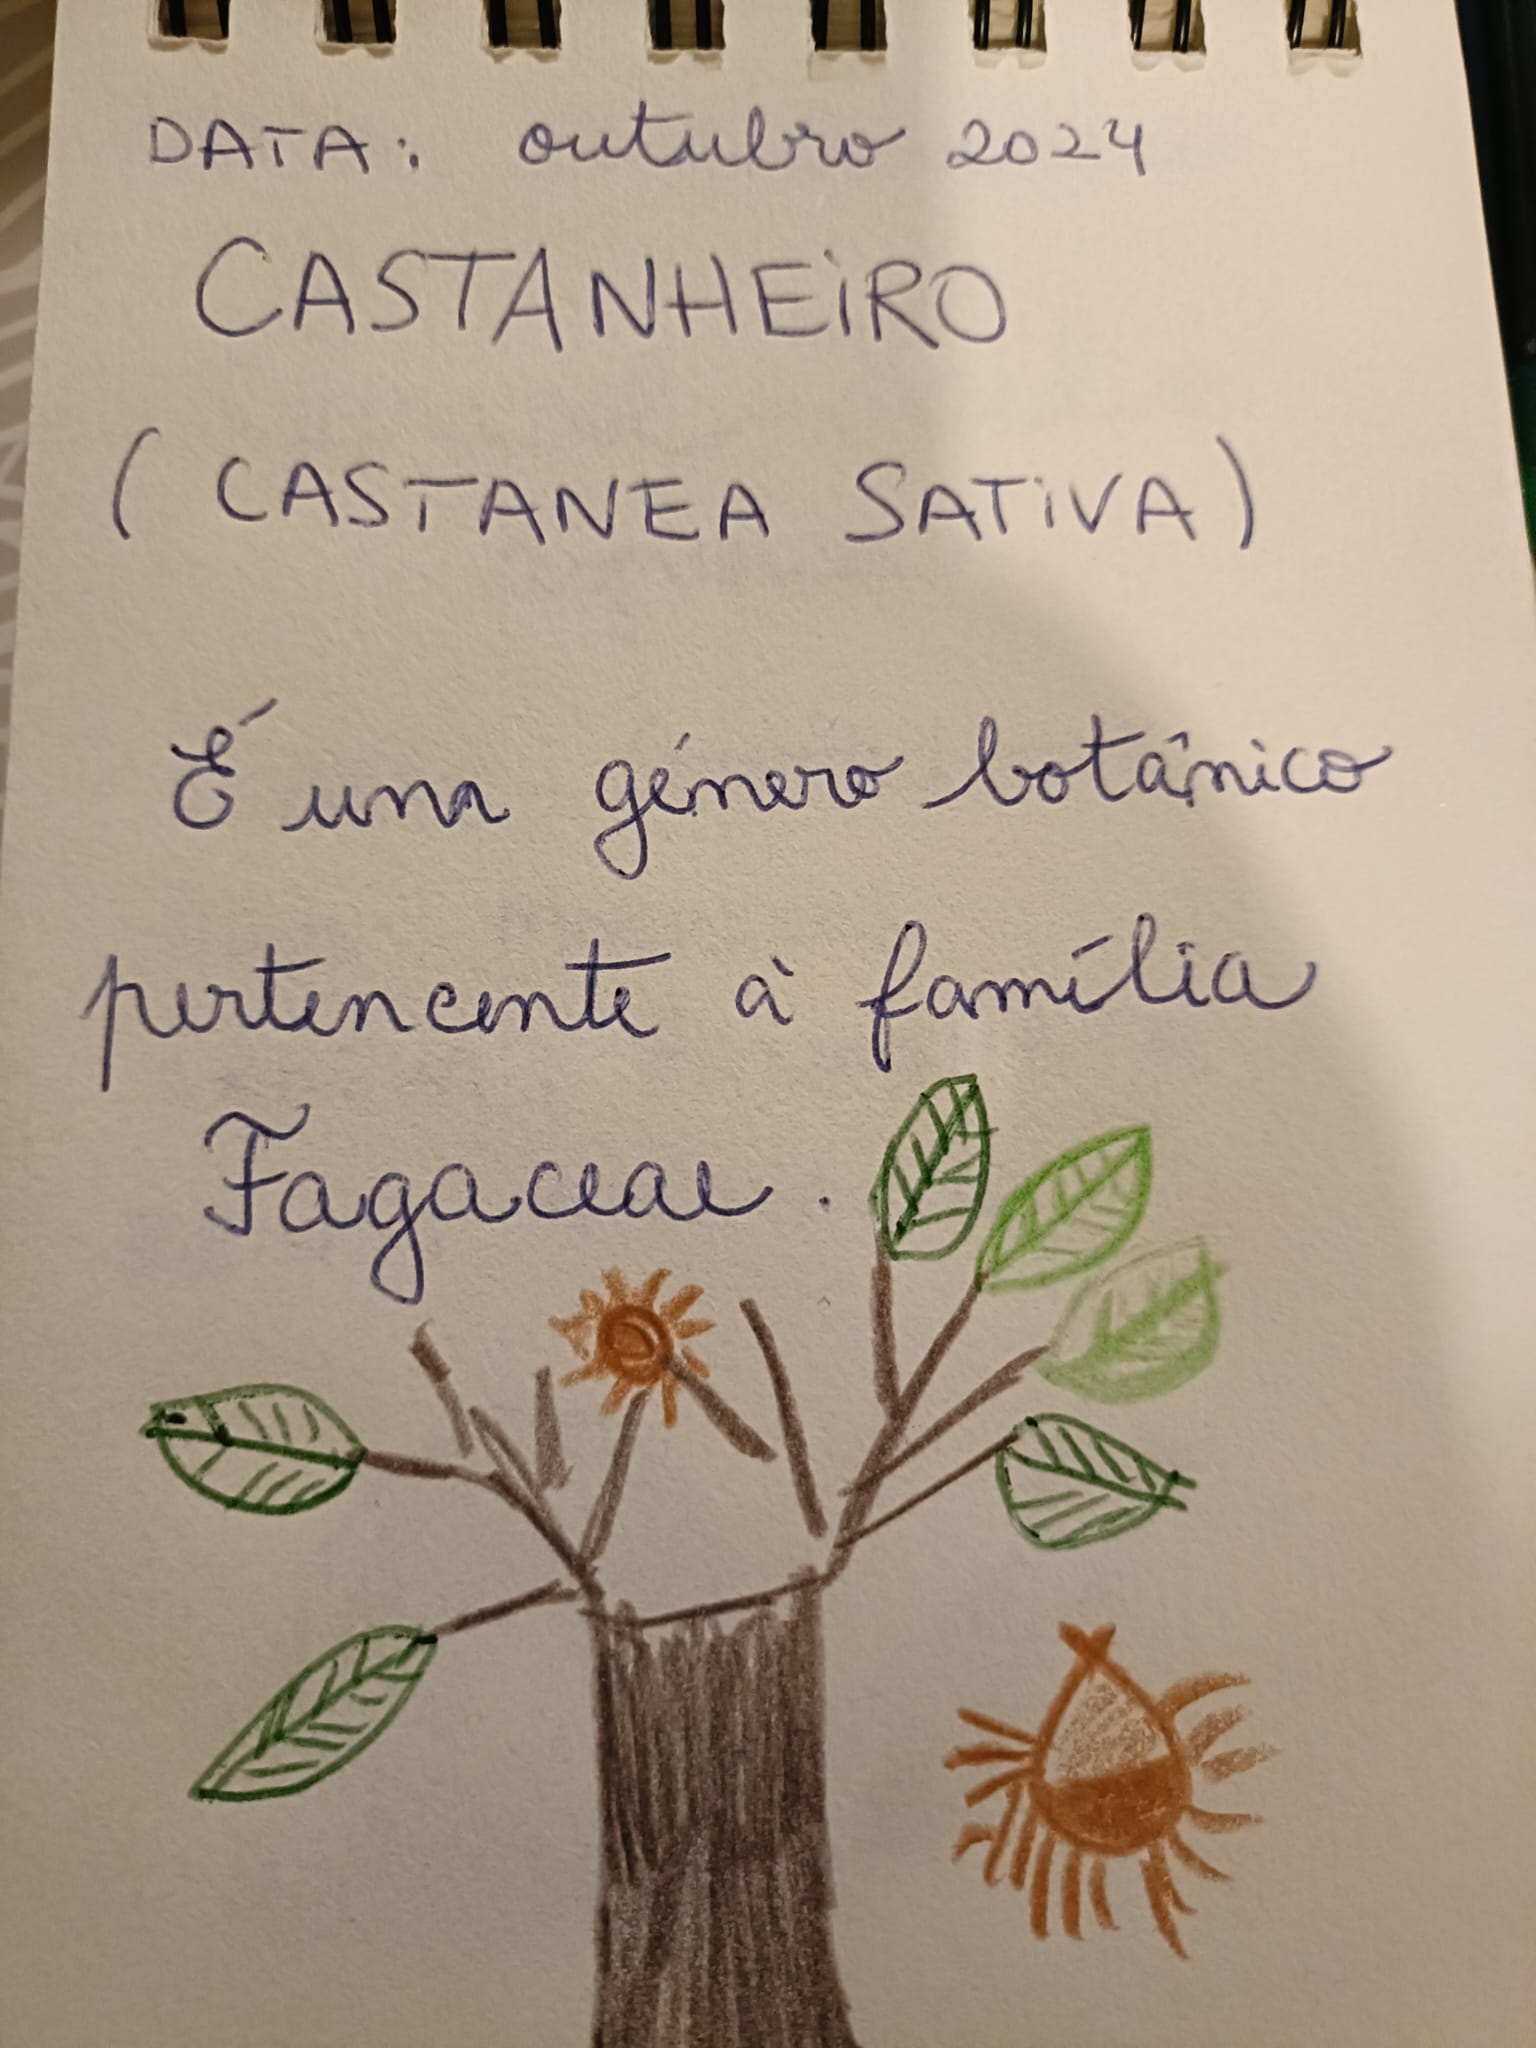 DATA: outubro 2024
CASTANHEIRO
( CASTANEA SATIVA )
É um género botânico
pertencente à família
Fagaceae.